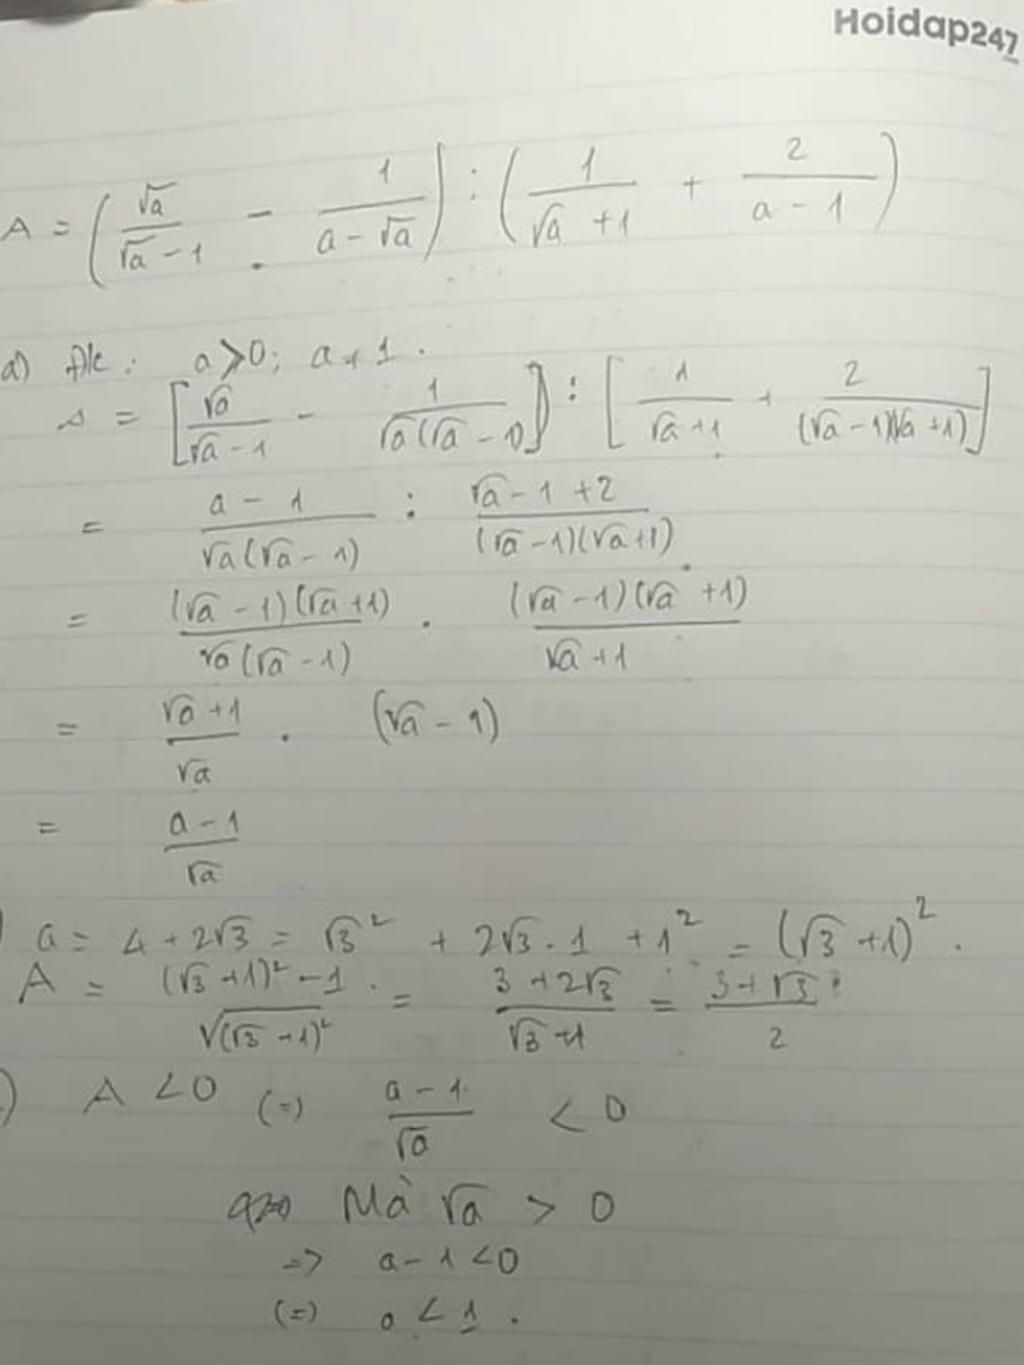 Hoidap247
A = (√a/(√a - 1) - 1/(a - √a)) : (1/(√a + 1) + 2/(a - 1))
a) Đk: a > 0; a ≠ 1.
A = [√a/(√a - 1) - 1/(√a(√a - 1))] : [1/(√a + 1) + 2/((√a - 1)(√a + 1))]
= (a - 1)/(√a(√a - 1)) : (√a - 1 + 2)/((√a - 1)(√a + 1))
= ((√a - 1)(√a + 1))/(√a(√a - 1)) . ((√a - 1)(√a + 1))/(√a + 1)
= (√a + 1)/√a . (√a - 1)
= (a - 1)/√a
) a = 4 + 2√3 = √3² + 2√3 . 1 + 1² = (√3 + 1)².
A = ((√3 + 1)² - 1)/√((√3 + 1)²) = (3 + 2√3)/(√3 + 1) = (3 + √3)/2
) A < 0 (=) (a - 1)/√a < 0
Mà √a > 0
=> a - 1 < 0
(=) a < 1.